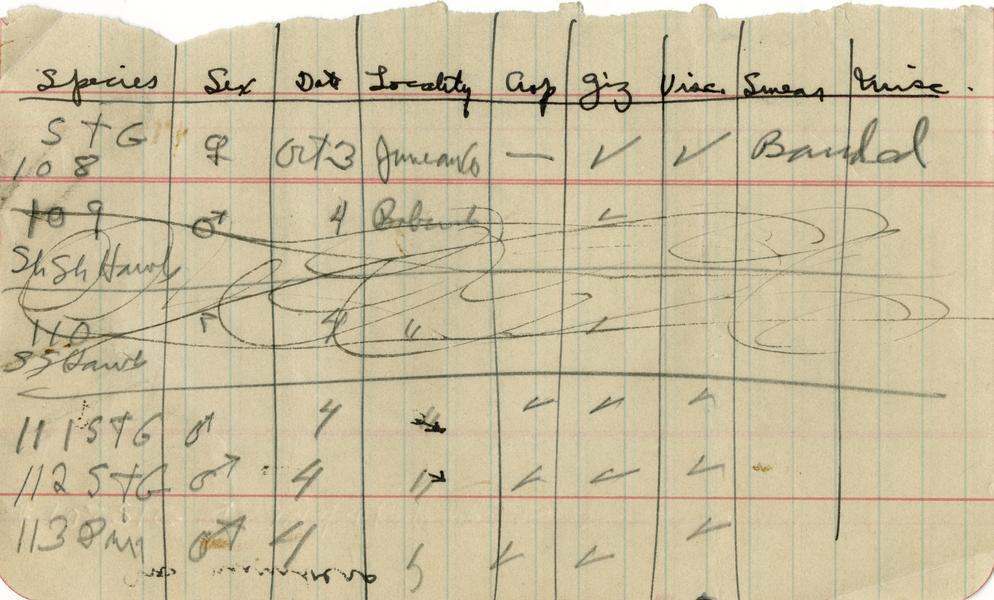 Species Sex Date Locality Crop Giz Visc. Smear Misc.
STG
108 ♀ Oct 3 Juneau Co — ✓ ✓ Banded
109 ♂ 4 ✓
Sh Sh Hawk
110 4 " ✓
SS Hawk
111 STG ♂ 4 " ✓ ✓ ✓
112 STG ♂ 4 " ✓ ✓ ✓
113 ♂ 4 ✓ ✓ ✓